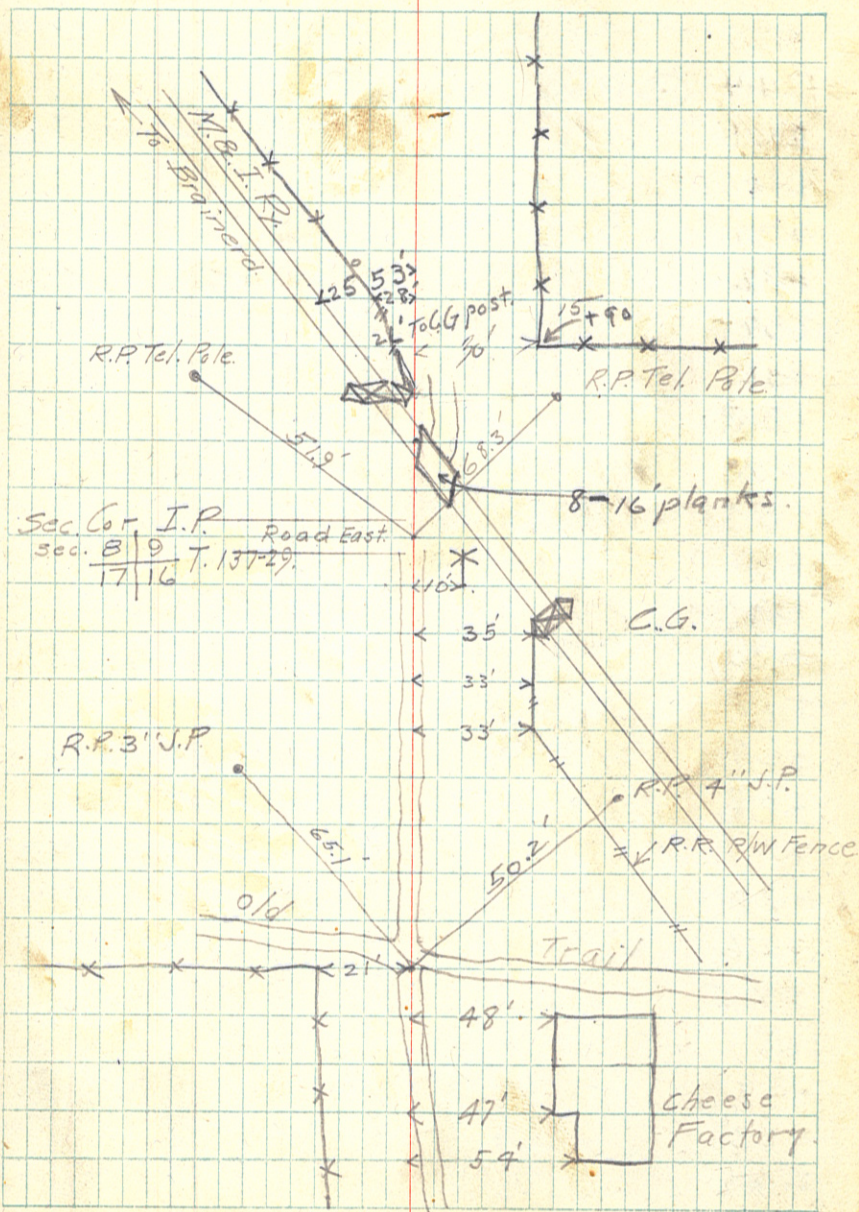 M. & I. Ry.
To Brainerd
25
53'
28'
To C.G post.
21'
30'
15+90
R.P. Tel. Pole.
R.P. Tel. Pole
51.9'
68.3'
8-16' planks.
Sec. Cor. I.P.
Road East.
sec. 8 | 9
17 | 16 T. 137-29.
10'
35'
C.G.
33'
33'
R.P. 3" J.P.
R.P. 4" J.P.
65.1'
50.2'
R.R. R/W Fence
Old
Trail
21'
48'
47'
54'
cheese
Factory.